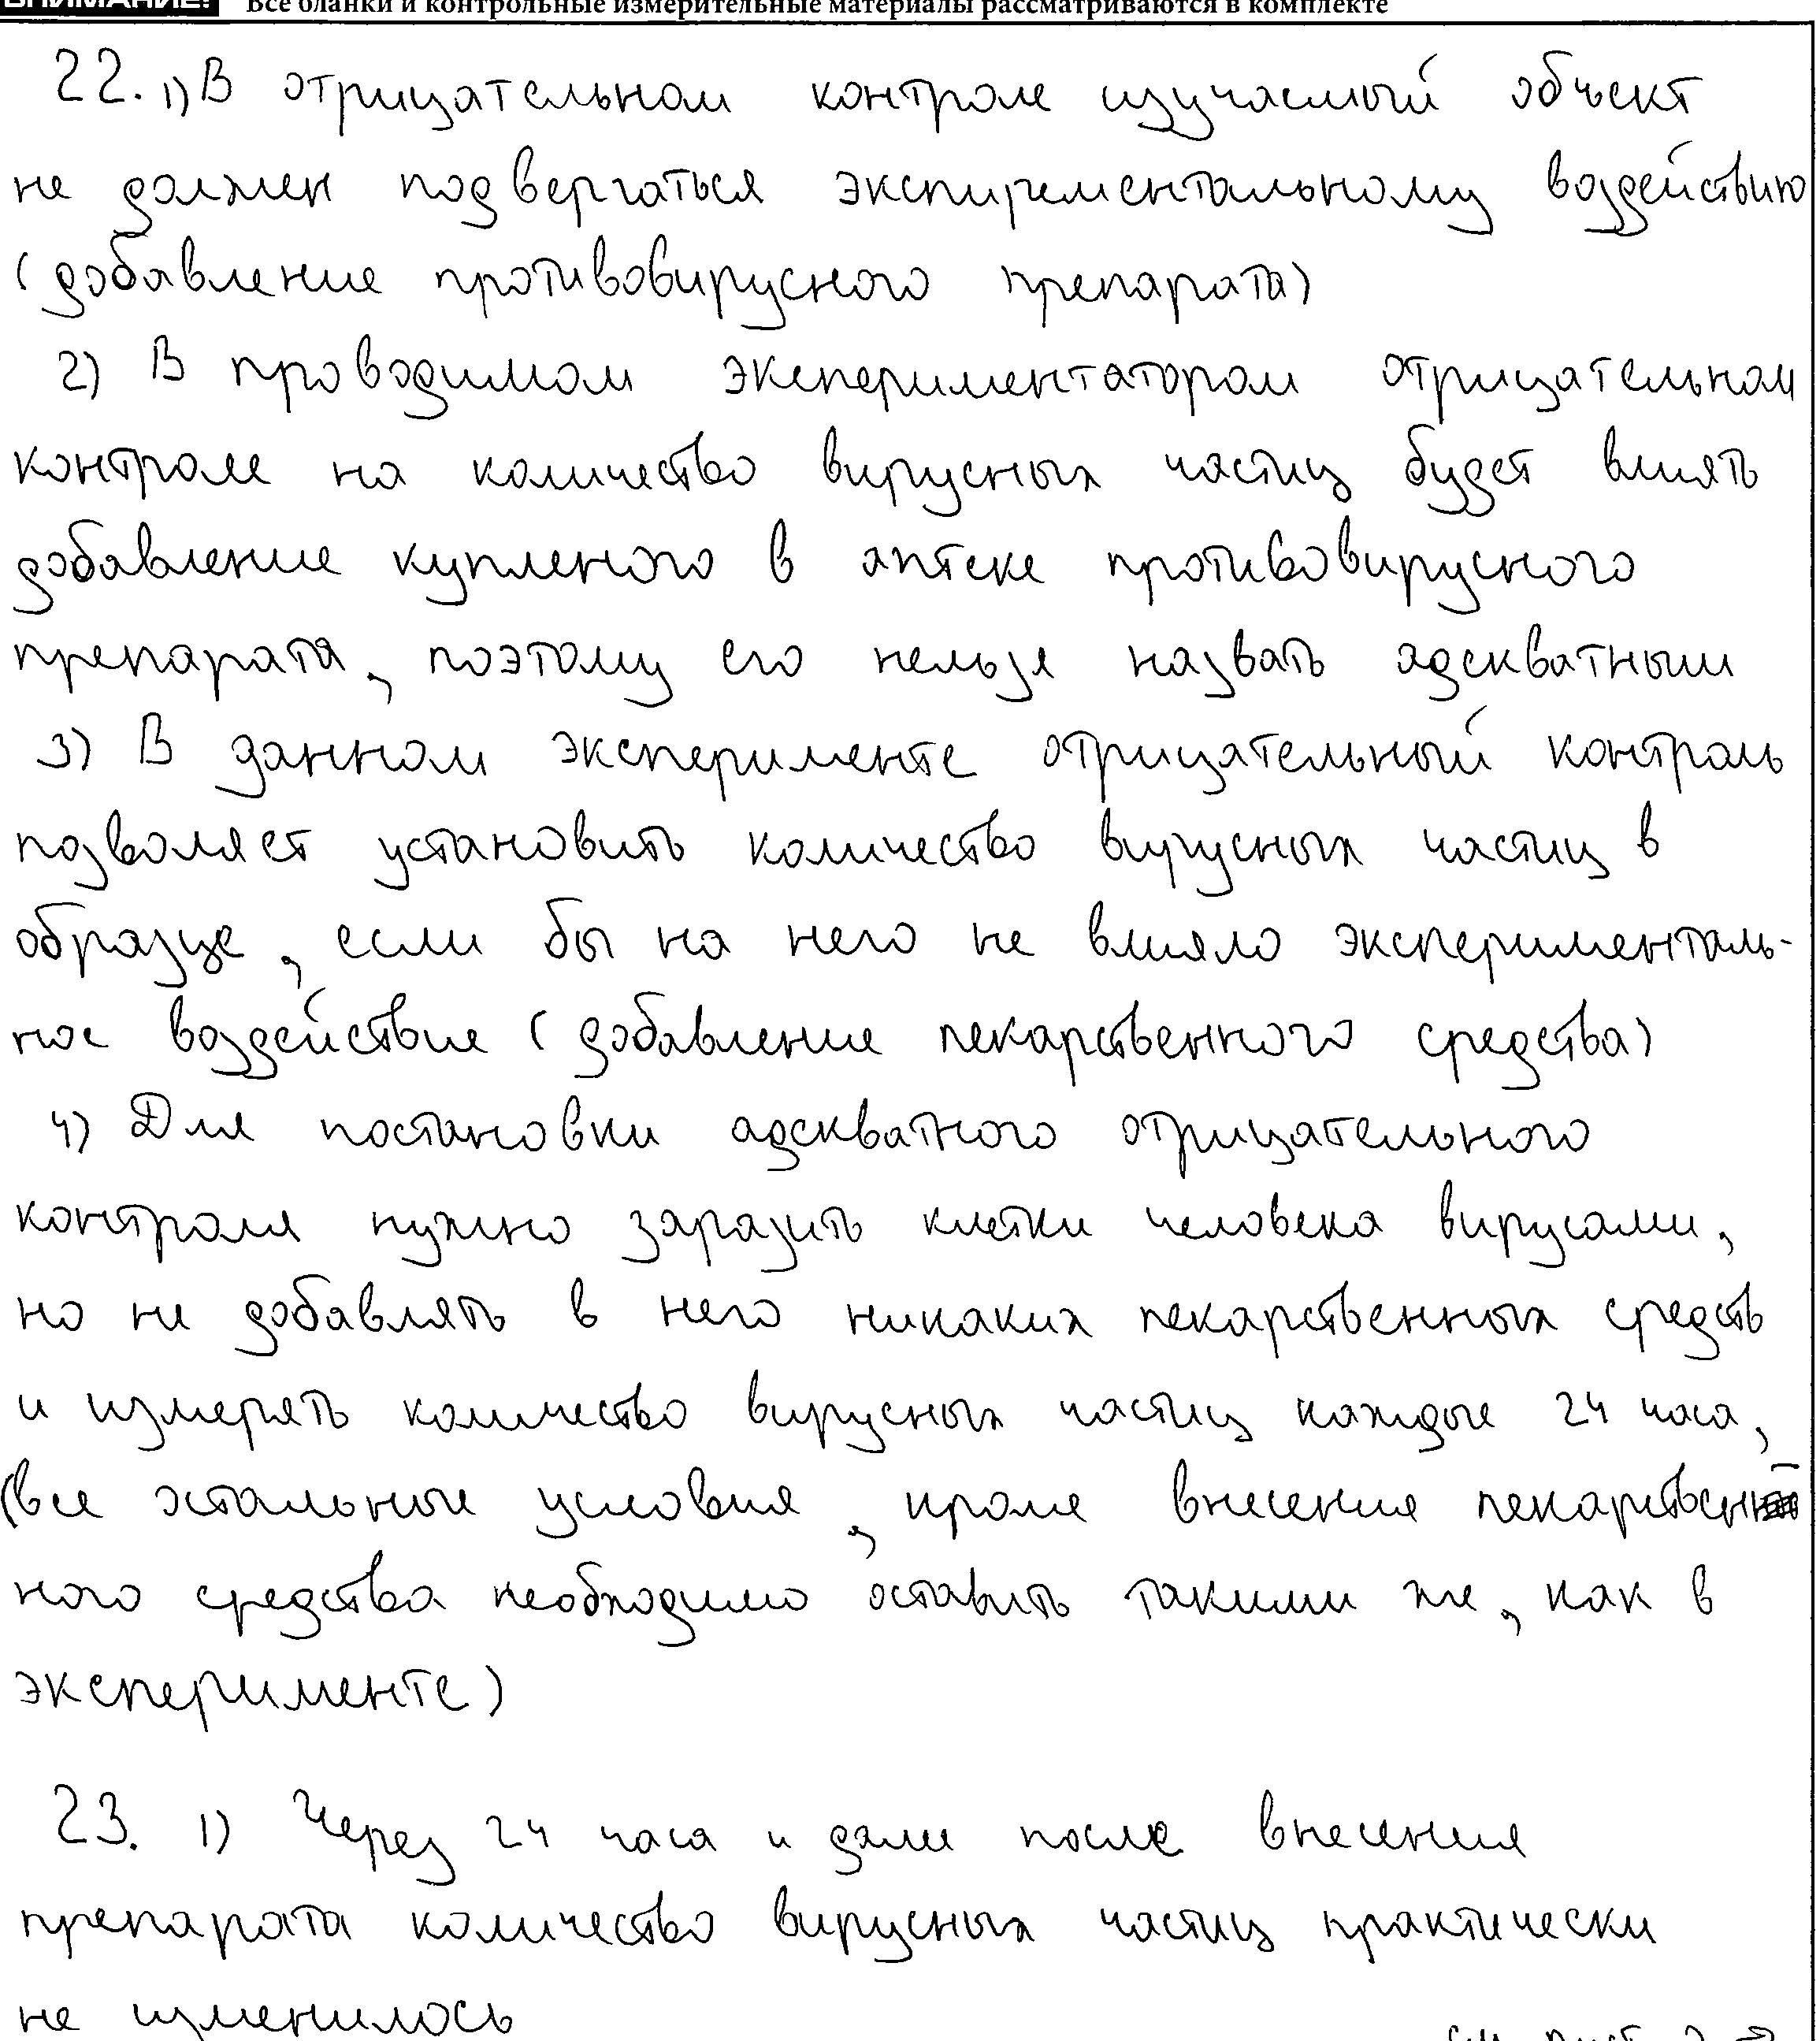 ВНИМАНИЕ! Все бланки и контрольные измерительные материалы рассматриваются в комплекте
22. 1) В отрицательном контроле изучаемый объект
не должен подвергаться экспирементальному воздействию
(добавление противовирусного препарата)
2) В проводимом экспериментатором отрицательном
контроле на количество вирусных частиц будет влиять
добавление купленого в аптеке противовирусного
препарата, поэтому его нельзя назвать адекватным
3) В данном эксперименте отрицательный контроль
позволяет установить количество вирусных частиц в
образце, если бы на него не влияло эксперименталь-
ное воздействие (добавление лекарственного средства)
4) Для постановки адекватного отрицательного
контроля нужно заразить клетки человека вирусами,
но не добавлять в него никаких лекарственных средств
и измерять количество вирусных частиц каждые 24 часа,
(все остальные условия, кроме внесения лекарствен-
ного средства необходимо оставить такими же, как в
эксперименте)
23. 1) Через 24 часа и дали после внесения
препарата количество вирусных частиц практически
не изменилось
см. лист 2 →